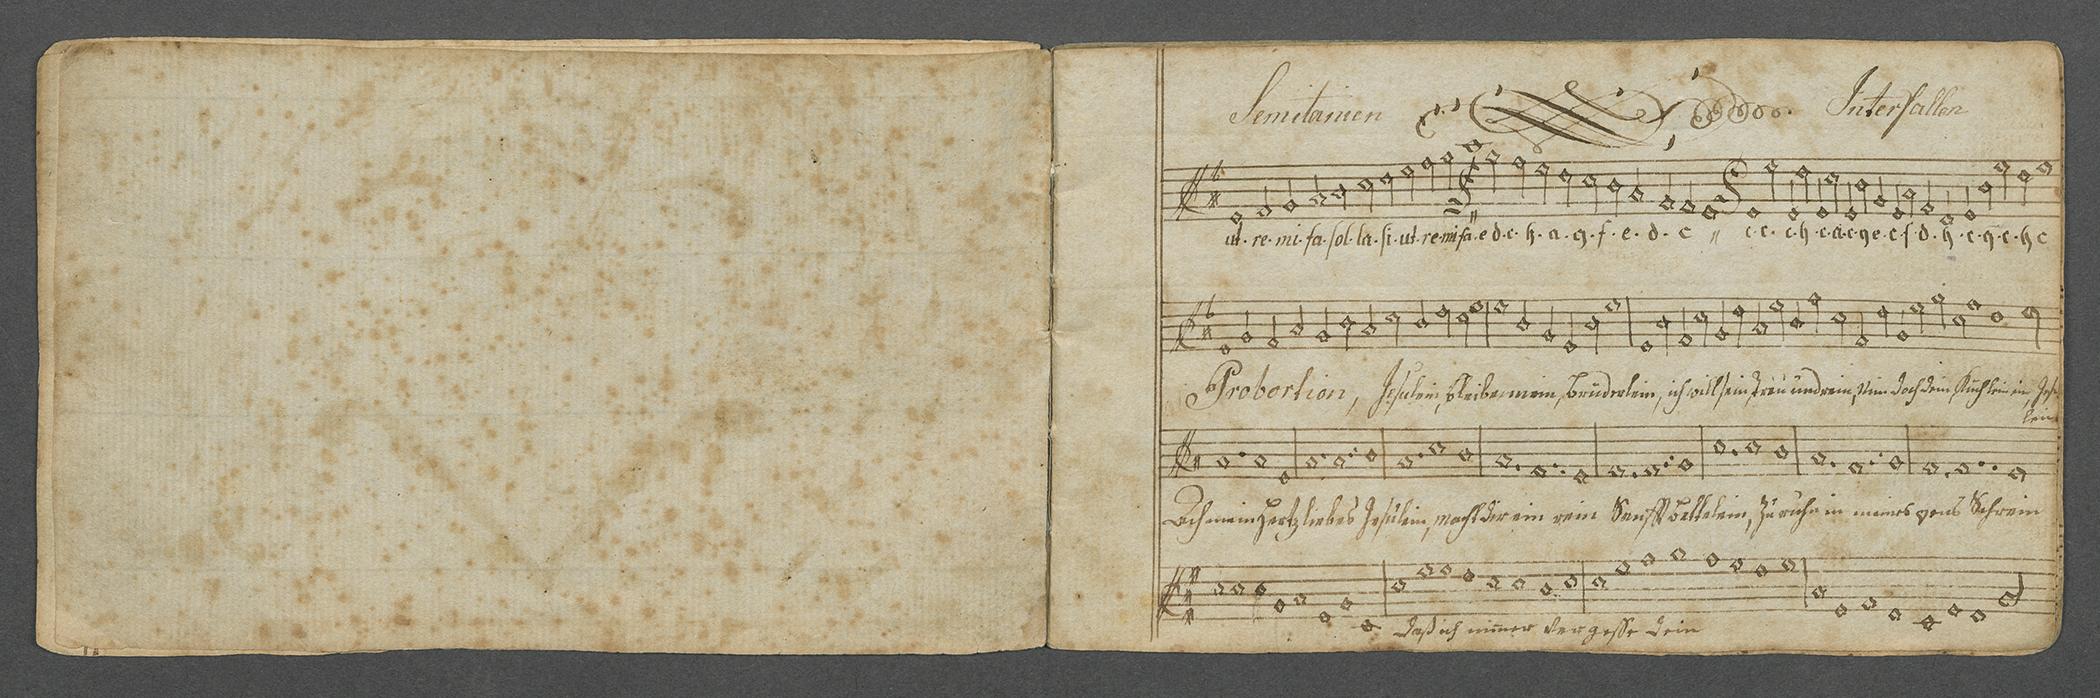 Semitanien Interfallen
ut. re. mi. fa. sol. la. si. ut. re. mi. fa. e d. c. h. a. g. f. e. d. c c. c. c. h. c. a. c. g e. c. f d. h. c. g. c. h c
Probortion, Jesulein, bleibe mein, brüderlein, ich will sein treu und rein, Nim doch dein in, Jesu
lein
Ach mein Hertz liebes Jesulein, mach dir ein rein Senfft bettelein, Zu ruhn in meines Schrein
Daß ich nimer vergesse dein